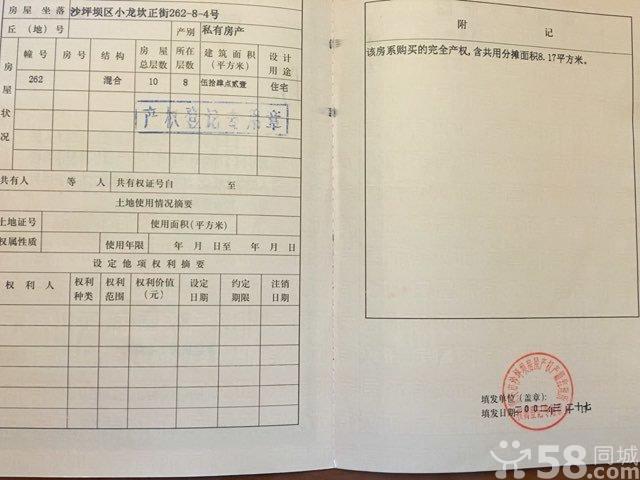 房屋 坐落 沙坪坝区小龙坎正街262-8-4号
丘(地)号 产别 私有房产
房屋状况
幢号 房号 结构 房屋总层数 所在层数 建筑面积(平方米) 设计用途
262 混合 10 8 伍拾肆点贰壹 住宅
产权登记专用章
共有人 等 人 共有权证号自 至
土地使用情况摘要
土地证号 使用面积(平方米)
权属性质 使用年限 年 月 日至 年 月 日
设定他项权利摘要
权利人 权利种类 权利范围 权利价值(元) 设定日期 约定期限 注销日期
附 记
该房系购买的完全产权,含共用分摊面积8.17平方米。
填发单位(盖章):
填发日期:
58同城